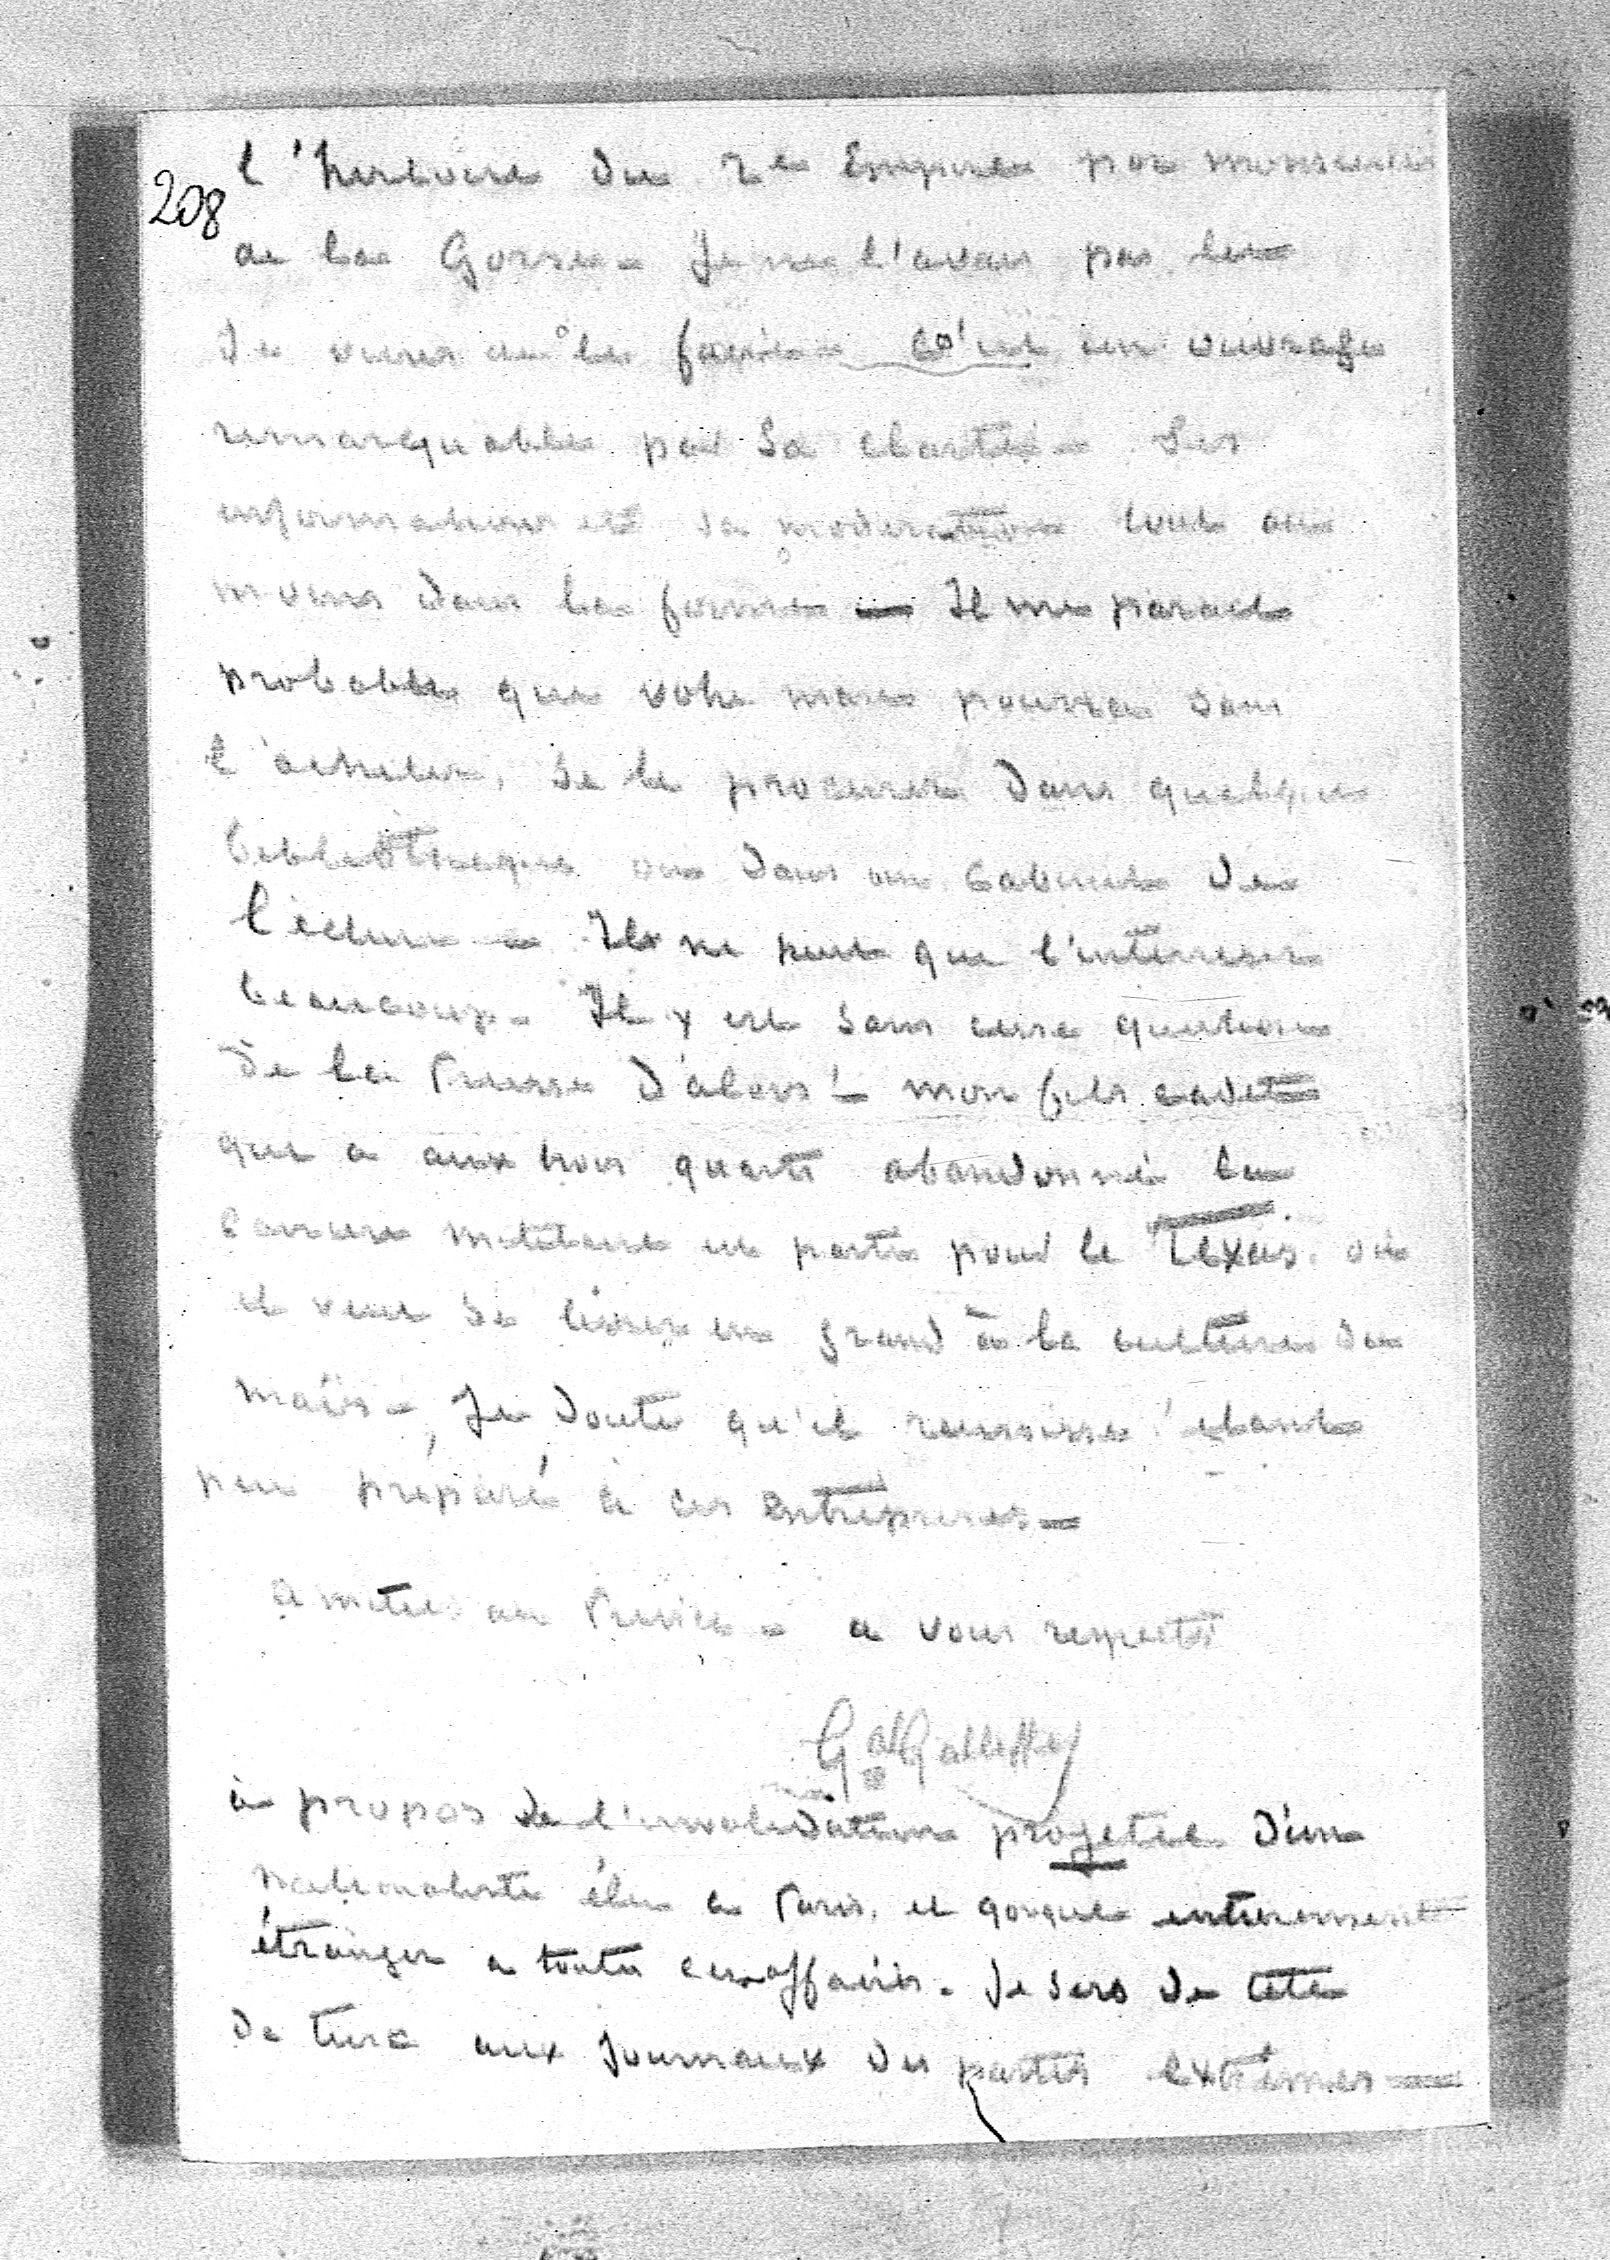 208
l'histoire du 2e Empire par monsieur
de la Gorse. Je ne l'avais pas lue
Je viens de le faire. C'est un ouvrage
remarquable par sa clarté. Ses
informations et sa moderation tout au
moins dans la forme — Il me parait
probable que votre mari pourra sans
l'acheter, se le procurer dans quelque
bibliothèque ou dans un cabinet de
lecture. Il ne peut que l'intéresser
beaucoup. Il y est sans cesse question
De la Prusse d'alors ! mon fils cadet
qui a aux trois quarts abandonné la
carriere militaire est parti pour le Texas. où
il veut se livrer en grand à la culture du
maïs. Je doute qu'il reussisse étant
peu préparé à ces entreprises —
amitiés au Prince. a vous respects
Gal Galliffet
à propos de l'invalidation projetée d'un
nationaliste élu a Paris, et quoique entierement
étranger a toutes ces affaires. Je sers de tete
de turc aux journaux des partis extrêmes —